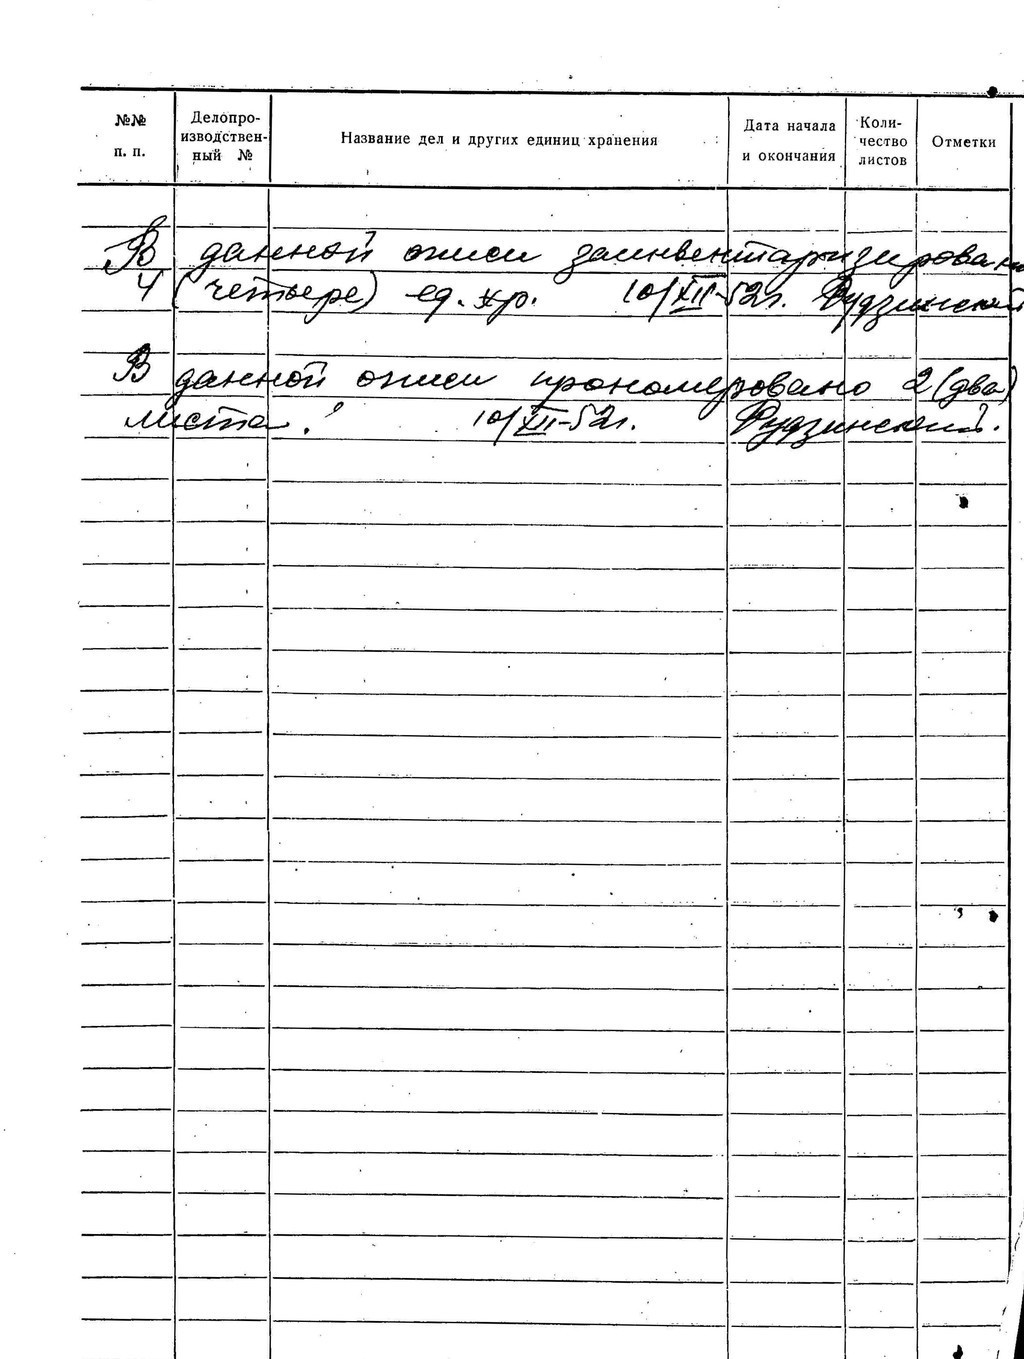 №№ п. п.
Делопро-
изводствен-
ный №
Название дел и других единиц хранения
Дата начала
и окончания
Коли-
чество
листов
Отметки
В данной описи заинвентаризировано
4 (четыре) ед. хр. 10/XII-52г. Рудзинский
В данной описи прономеровано 2 (два)
листа. 10/XII-52г. Рудзинский.